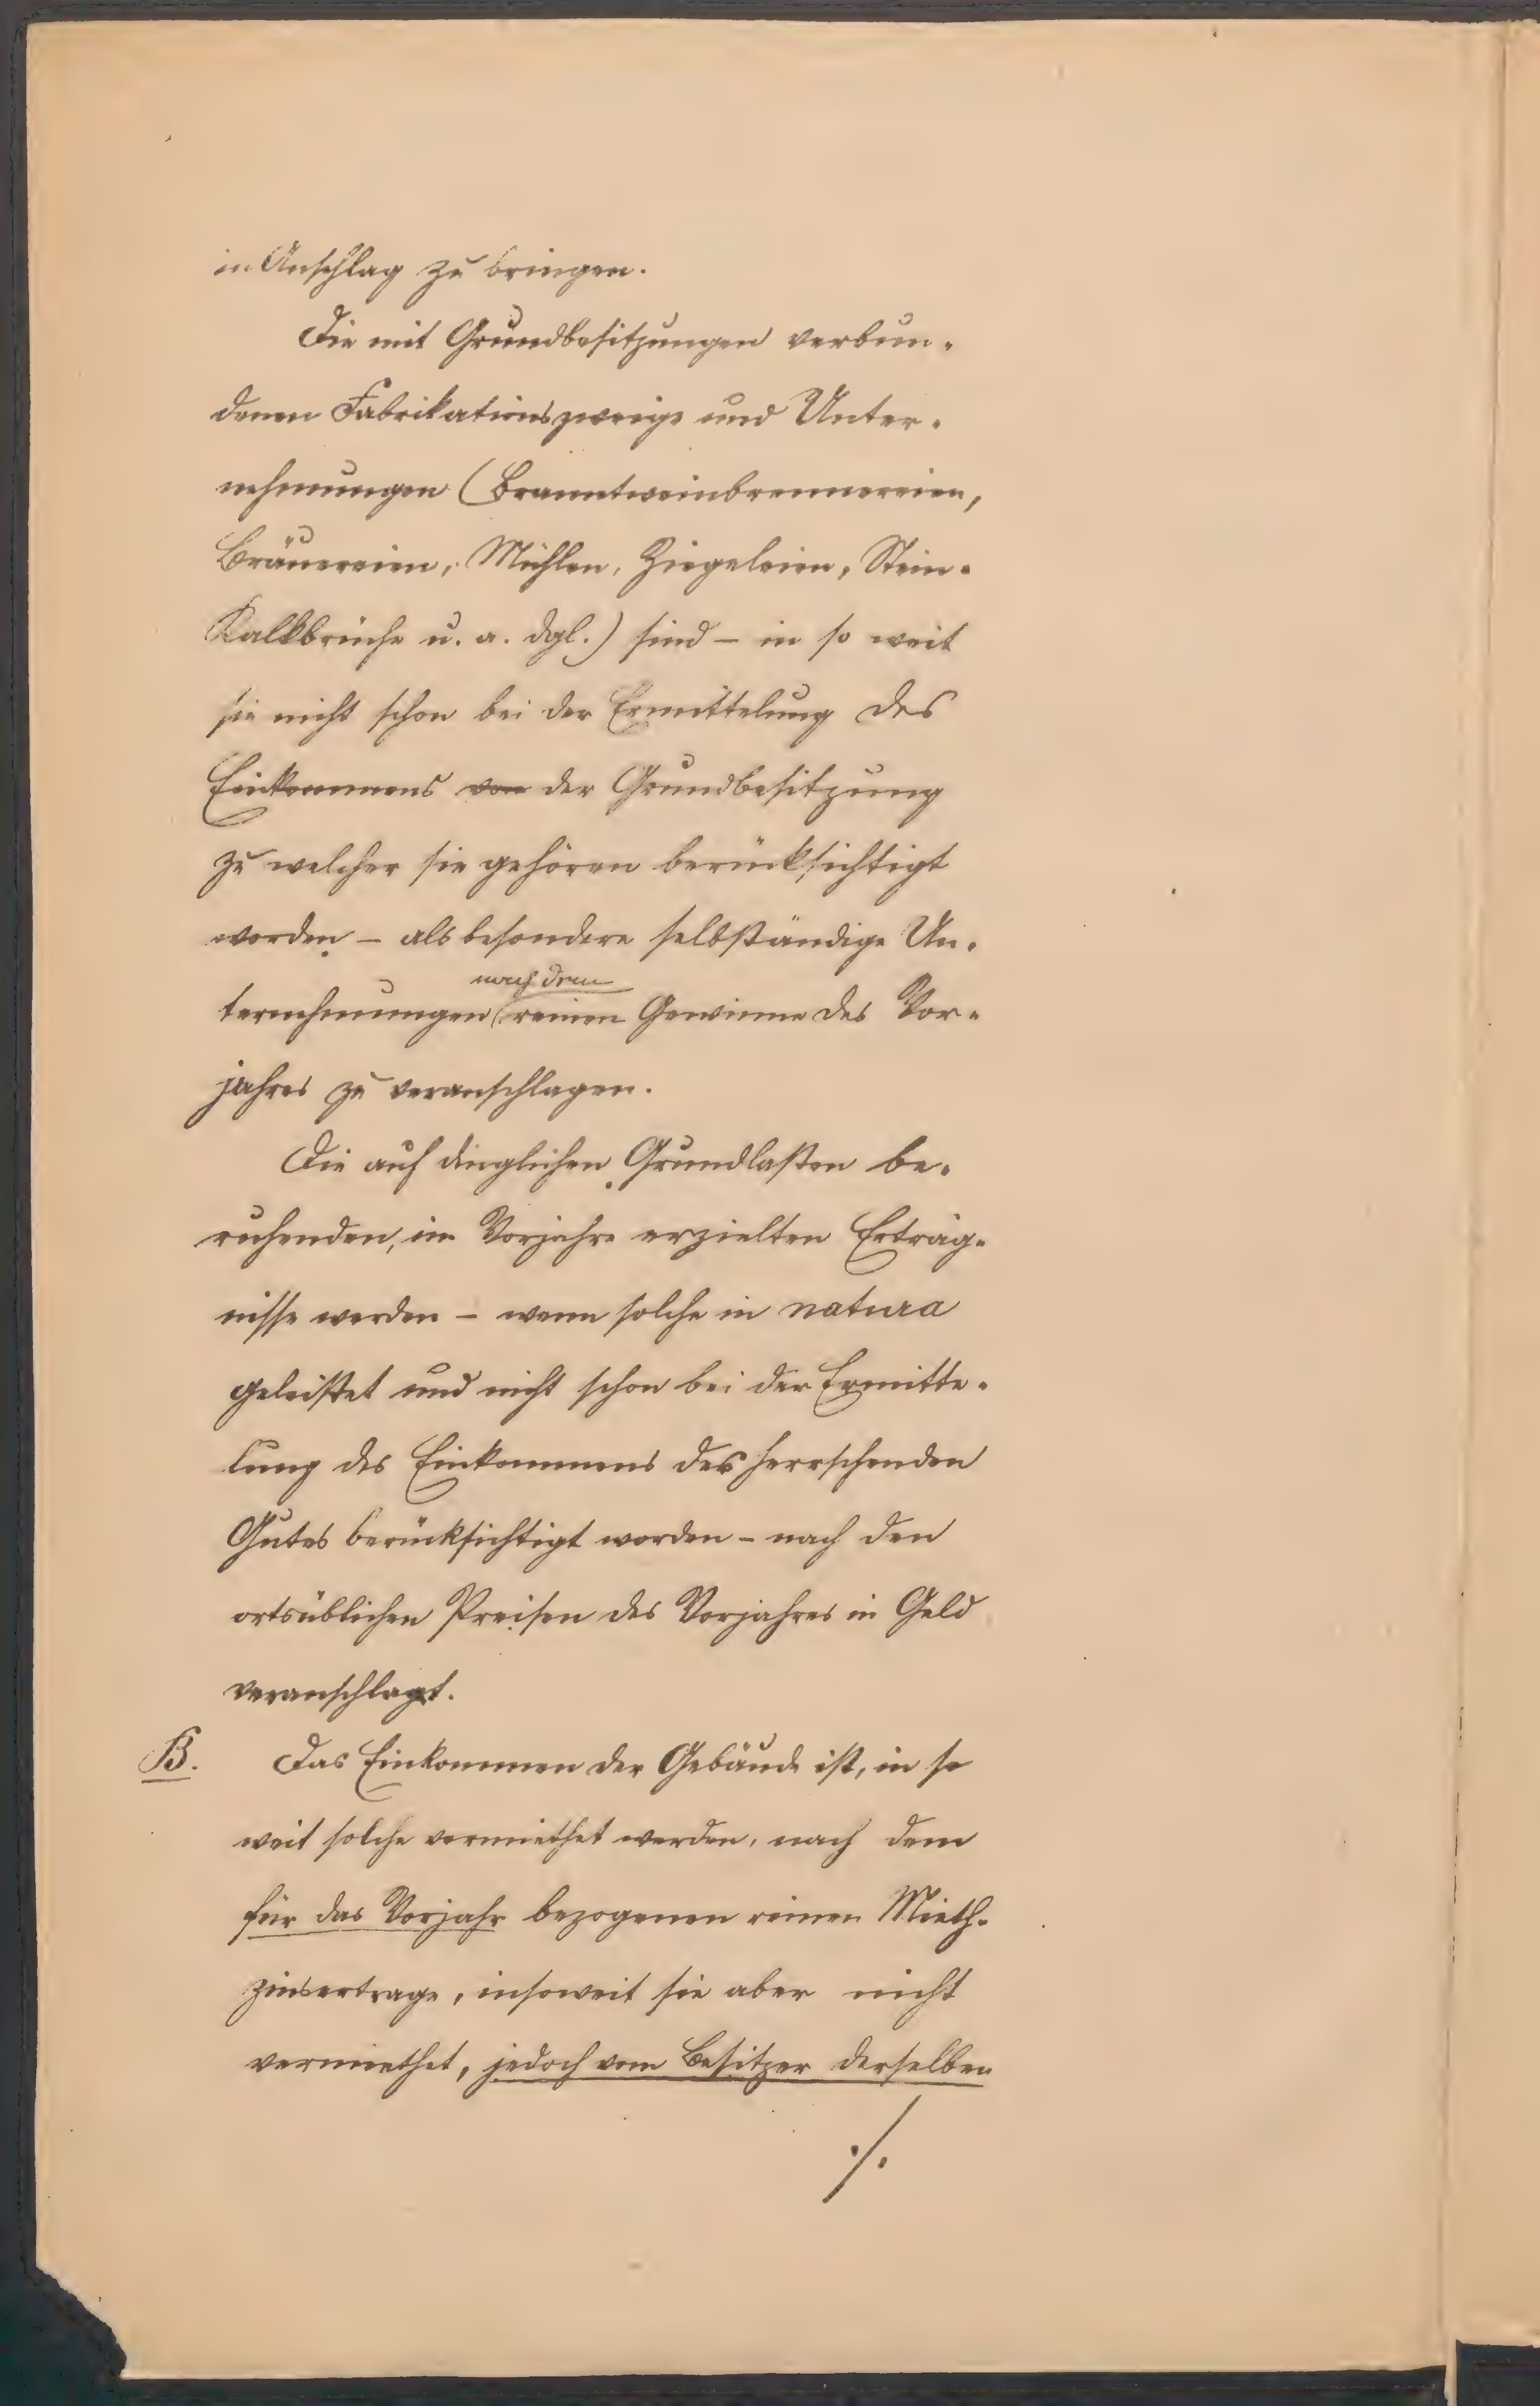 in Anschlag zu bringen.
Die mit Grundbesitzungen verbun-
denen Fabrikationszweige und Unter-
nehmungen (Branntweinbrennereien,
Bräuereien, Mühlen, Ziegeleien, Stein-
Kalkbrüche u. a. dgl.) sind – in so weit
sie nicht schon bei der Ermittelung des
Einkommens von der Grundbesitzung
zu welcher sie gehören berücksichtigt
worden – als besondere selbständige Un-
nach dem
ternehmungen reinen Gewinne des Vor-
jahres zu veranschlagen.
Die auf dinglichen Grundlasten be-
ruhenden, im Vorjahre erzielten Erträg-
nisse werden – wenn solche in natura
geleistet und nicht schon bei der Ermitte-
lung des Einkommens des herrschenden
Gutes berücksichtigt worden – nach den
ortsüblichen Preisen des Vorjahres in Geld
veranschlagt.
B. Das Einkommen der Gebäude ist, in so
weit solche vermiethet werden, nach dem
für das Vorjahr bezogenen reinen Mieth-
zinsertrage, insoweit sie aber nicht
vermiethet, jedoch vom Besitzer derselben
./.